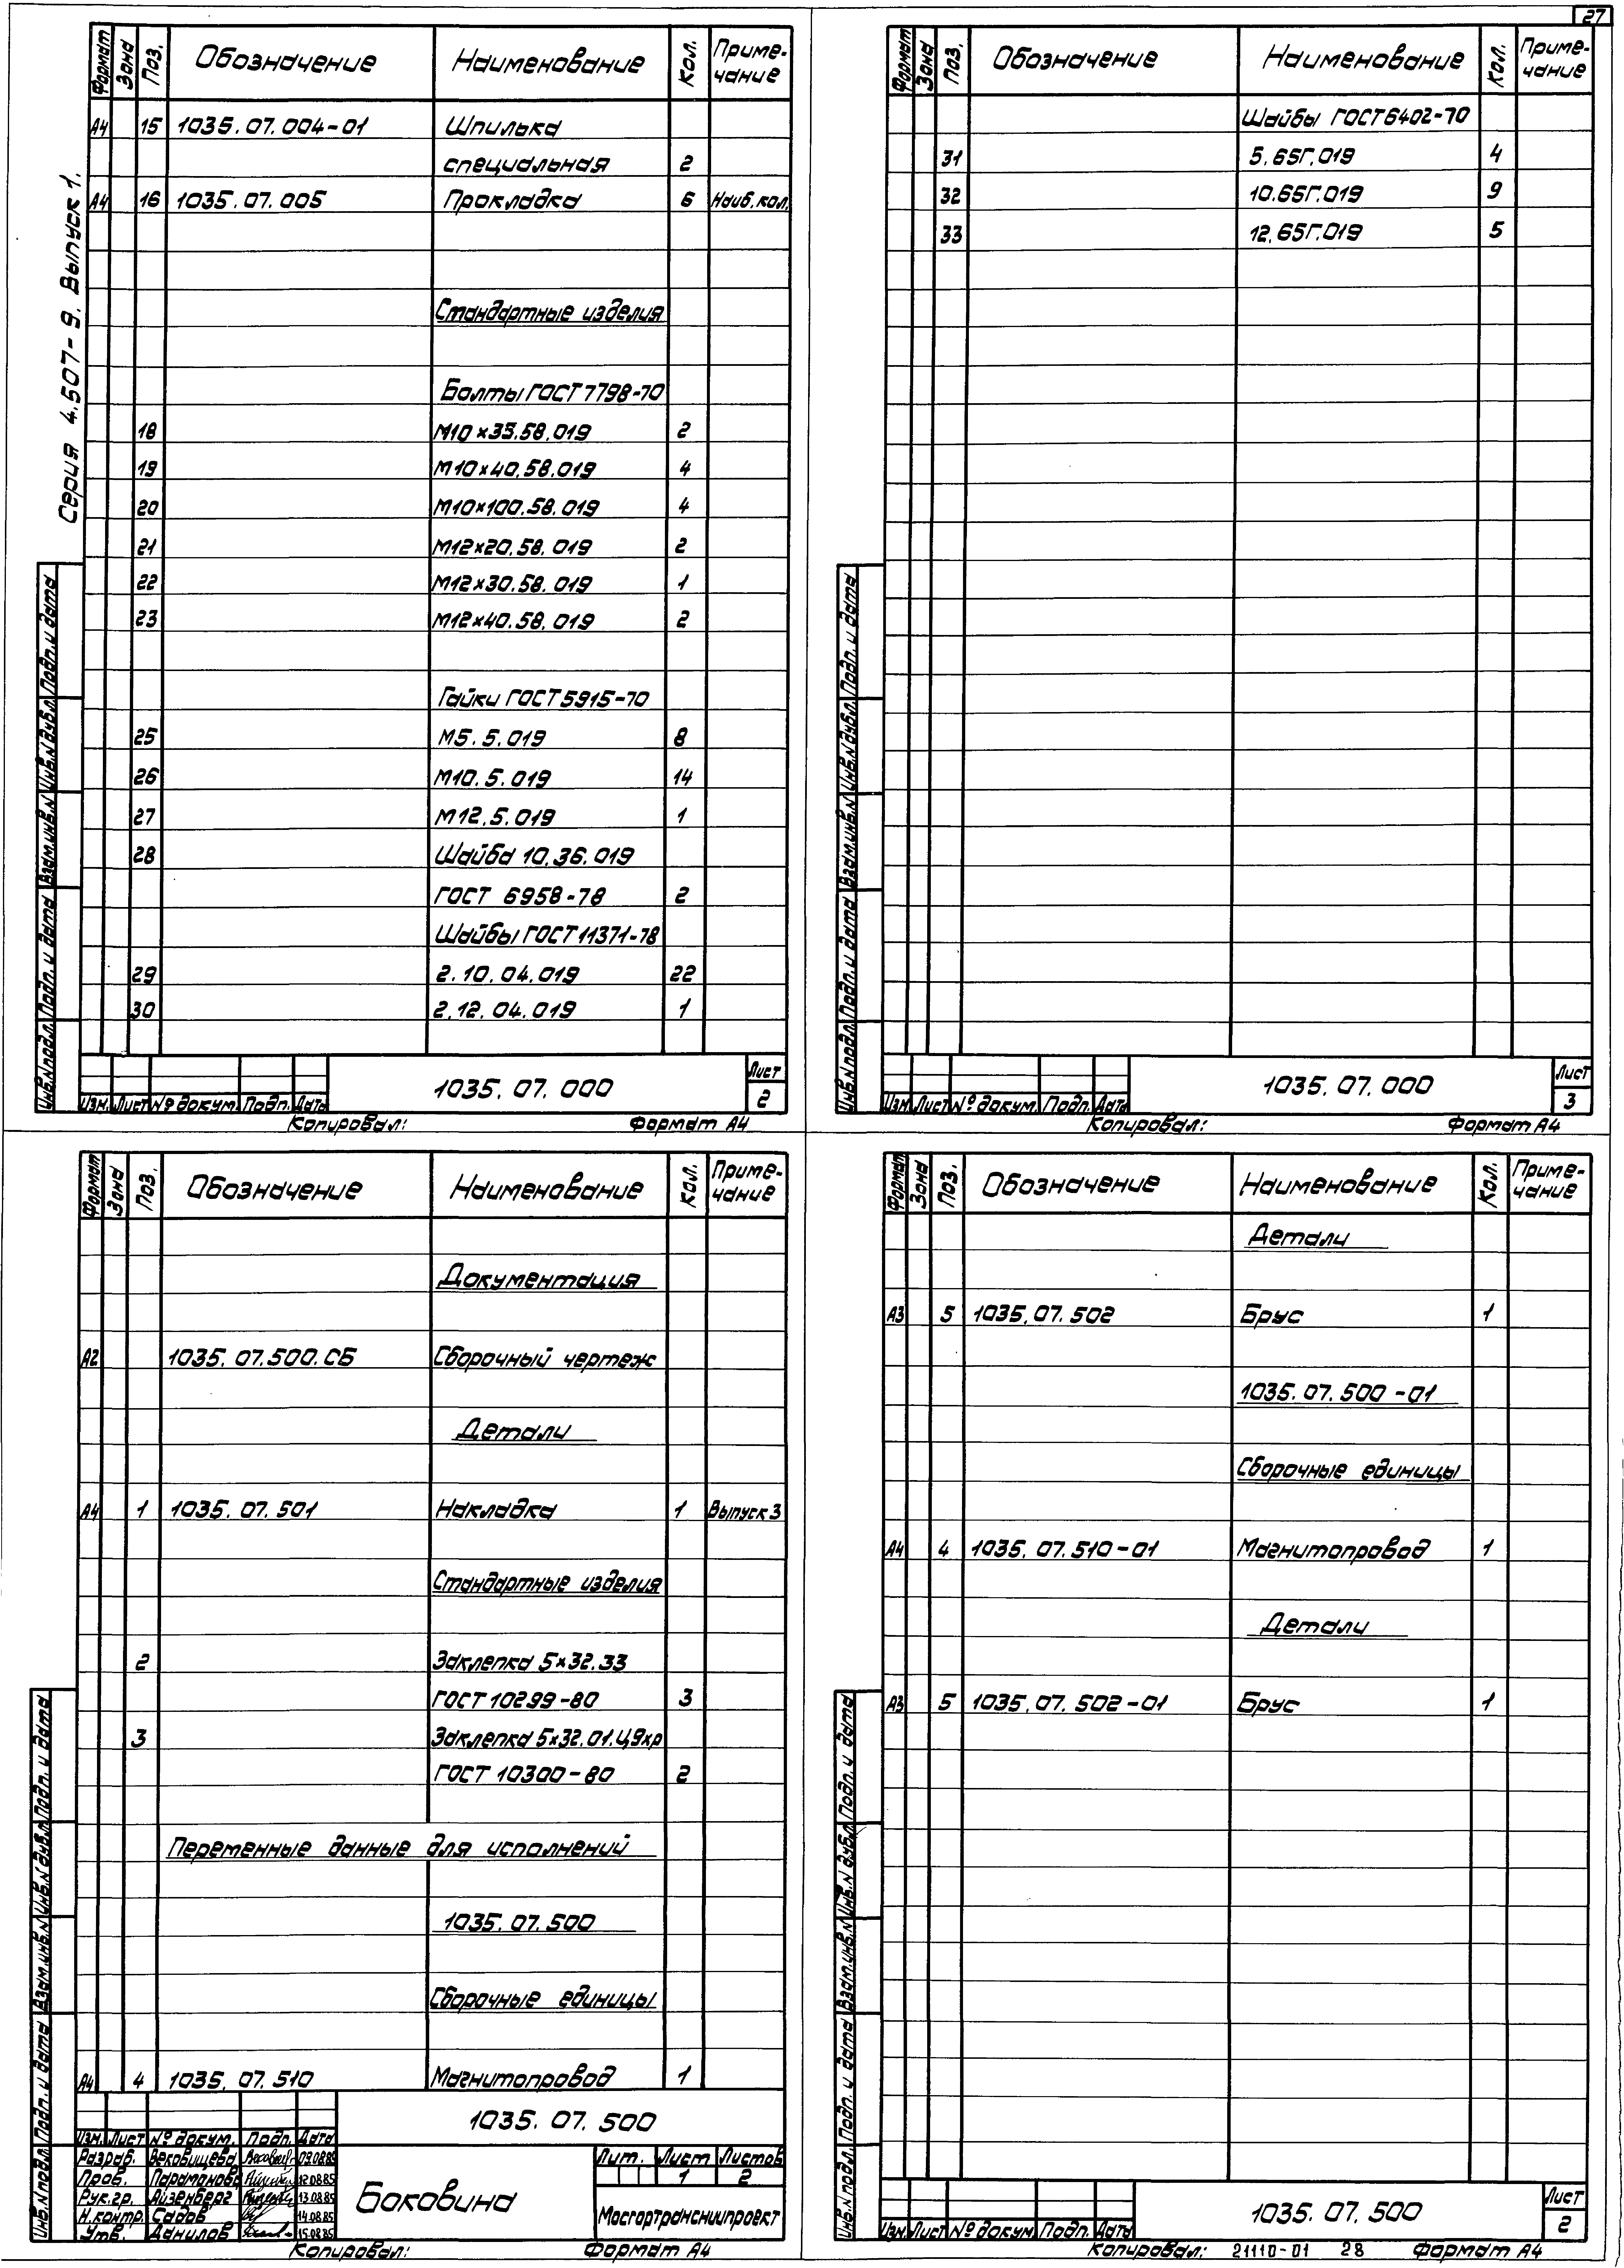 27
Серия 4.507-9. Выпуск 1.
Формат Зона Поз. Обозначение Наименование Кол. Приме-
чание
А4 15 1035.07.004-01 Шпилька
специальная 2
А4 16 1035.07.005 Прокладка 6 Наиб.кол.
Стандартные изделия
Болты ГОСТ 7798-70
18 М10×35.58.019 2
19 М10×40.58.019 4
20 М10×100.58.019 4
21 М12×20.58.019 2
22 М12×30.58.019 1
23 М12×40.58.019 2
Гайки ГОСТ 5915-70
25 М5.5.019 8
26 М10.5.019 14
27 М12.5.019 1
28 Шайба 10.36.019
ГОСТ 6958-78 2
Шайбы ГОСТ 11371-78
29 2.10.04.019 22
30 2.12.04.019 1
Инв.N подл. Подп. и дата Взам.инв.N Инв.N дубл. Подп. и дата
1035.07.000
Лист
2
Изм. Лист № докум. Подп. Дата
Копировал: Формат А4
Формат Зона Поз. Обозначение Наименование Кол. Приме-
чание
Шайбы ГОСТ 6402-70
31 5.65Г.019 4
32 10.65Г.019 9
33 12.65Г.019 5
Инв.N подл. Подп. и дата Взам.инв.N Инв.N дубл. Подп. и дата
1035.07.000
Лист
3
Изм. Лист № докум. Подп. Дата
Копировал: Формат А4
Формат Зона Поз. Обозначение Наименование Кол. Приме-
чание
Документация
А2 1035.07.500.СБ Сборочный чертеж
Детали
А4 1 1035.07.501 Накладка 1 Выпуск 3
Стандартные изделия
2 Заклепка 5×32.33
ГОСТ 10299-80 3
3 Заклепка 5×32.01.Ц9хр
ГОСТ 10300-80 2
Переменные данные для исполнений
1035.07.500
Сборочные единицы
А4 4 1035.07.510 Магнитопровод 1
Инв.N подл. Подп. и дата Взам.инв.N Инв.N дубл. Подп. и дата
1035.07.500
Изм. Лист № докум. Подп. Дата
Разраб. Вековищева 09.08.85
Пров. Парамонова 12.08.85
Рук.гр. Айзенберг 13.08.85
Н.контр. Садов 14.08.85
Утв. Данилов 15.08.85
Боковина
Лит. Лист Листов
1 2
Мосгортрансниипроект
Копировал: Формат А4
Формат Зона Поз. Обозначение Наименование Кол. Приме-
чание
Детали
А3 5 1035.07.502 Брус 1
1035.07.500-01
Сборочные единицы
А4 4 1035.07.510-01 Магнитопровод 1
Детали
А3 5 1035.07.502-01 Брус 1
Инв.N подл. Подп. и дата Взам.инв.N Инв.N дубл. Подп. и дата
1035.07.500
Лист
2
Изм. Лист № докум. Подп. Дата
Копировал: 21110-01 28 Формат А4